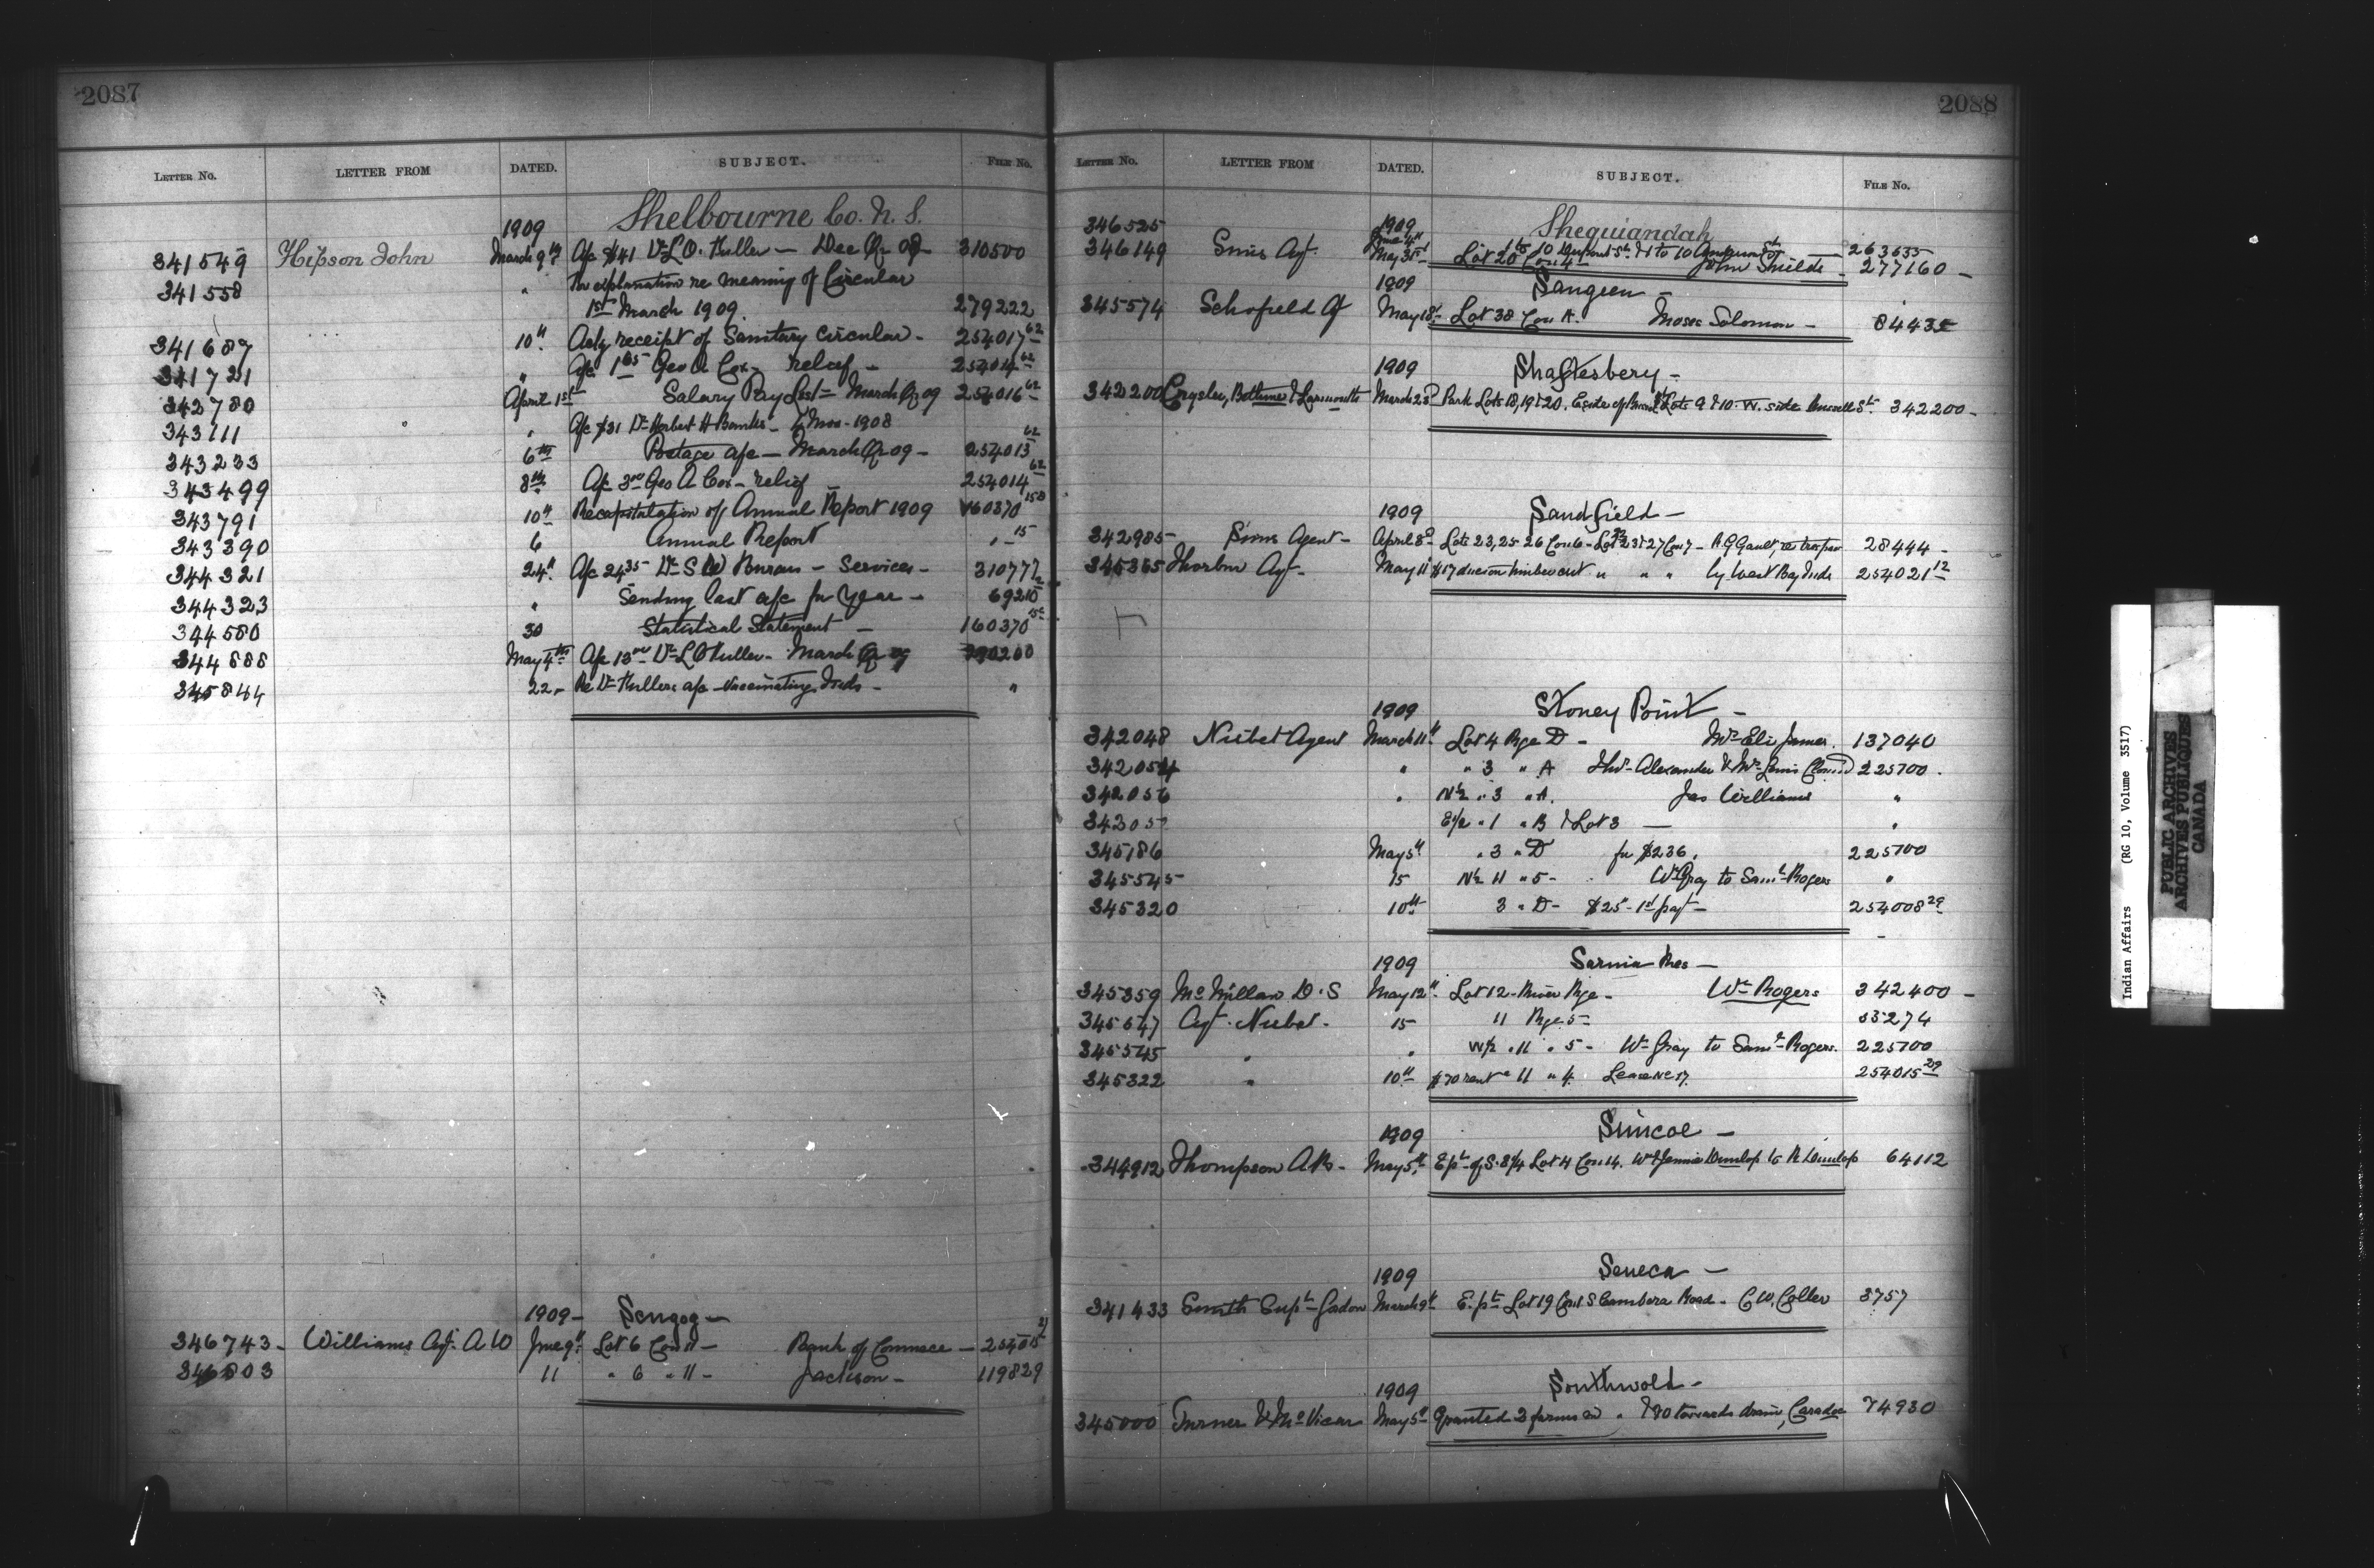 2087
LETTER No. LETTER FROM DATED. SUBJECT. FILE No.
1909 Shelbourne Co. N. S.
341549 Hipson John March 9th A/c $41 Dr L.O. Fuller — Dec Qr 08 310500
341558 " For explanation re meaning of Circular
1st March 1909. 279222
341687 10th Ackg receipt of Sanitary Circular - 254017 62
341721 " A/c Geo A Cox - relief - 254014 62
342780 April 1st Salary Pay List - March Qr 09 254016 62
343111 " A/c $31 Dr Herbert H Banks - 1908
343233 6th Postage a/c — March Qr 09 - 254013 62
343499 8th A/c Geo A Cox - relief 254014 62
343791 10th Recapitulation of Annual Report 1909 160370
343390 6 Annual Report " - 15
344321 24th A/c 24 35 Dr S W Burns - Services - 310777
344323 " Sending last a/c for Year - 69210
344580 30 Statistical Statement — 160370
344888 May 4th A/c Dr L O Fuller - March Qr 09
345844 22 - Re Dr Fullers a/c - Vaccinating Inds - "
1909 - Scugog -
346743 - Williams Agt. A W June 9th Lot 6 Con 11 - Bank of Commerce - 254015 21
346803 11 " 6 " 11 - Jackson - 119829
2088
LETTER No. LETTER FROM DATED. SUBJECT. FILE No.
346525 1909 Sheguiandah
June 4th 263635
346149 Sims Agt. May 31st Lot 20 Con 4 - John Shields - 277160 -
1909 Saugeen -
345574 Schofield Ag May 18th Lot 38 Con A. Moses Solomon - 84435
1909 Shaftesbery -
342200 Crysler, Bethune & Larmonth March 23d Park Lots 18, 19 & 20. E side of Lots 9 & 10. W. side St. 342200 -
1909 Sandfield -
342985 Sims Agent - April 8th Lots 23, 25 26 Con 6 - Lot 23 & 27 Con 7 - A. G Gault, re 28444 -
345365 Thorburn Agt - May 11 $17 dues on timber cut " " " by West Bay Inds 254021 12
1909 Stoney Point -
342048 Nisbet Agent March 11th Lot 4 Rge D - Mrs Eli James. 137040
342054 " " 3 " A Alexander & Mrs Lewis Cloud 225700.
342056 " N½ " 3 " A. Jas Williams "
342057 E½ " 1 " B & Lot 3 — "
345186 May 5th " 3 " D for $236. 225700
345545 15 N½ 11 " 5 - Wm Gray to Saml Rogers "
345320 10th 3 " D - $25 - 1st payt - 254008 29
1909 Sarnia Res -
345359 McMillan D. S May 12th Lot 12 - River Rge - Wm Rogers 342400 -
345547 Agt. Nisbet - 15 11 Rge 5 - 53274
345545 " " W½ " 11 " 5 - Wm Gray to Saml Rogers. 225700
345322 " 10th $70 rent " 11 " 4. Lease No 17. 254015 29
1909 Simcoe -
344912 Thompson A.R. - May 5th E pt of S. 3/4 Lot 4 Con 14. Wm & Jennie Dunlop to R Dunlop 64112
1909 Seneca -
341433 Smith Supt Gordon March 9th E. pt Lot 19 Con 1 S Cambera Road - C W. Coller 3757
1909 Southwold -
345000 Turner & McVicar May 5th Granted 2 farms in " & 70 towards drain, Caradoc 74930
Indian Affairs (RG 10, Volume 3517)
PUBLIC ARCHIVES
ARCHIVES PUBLIQUES
CANADA